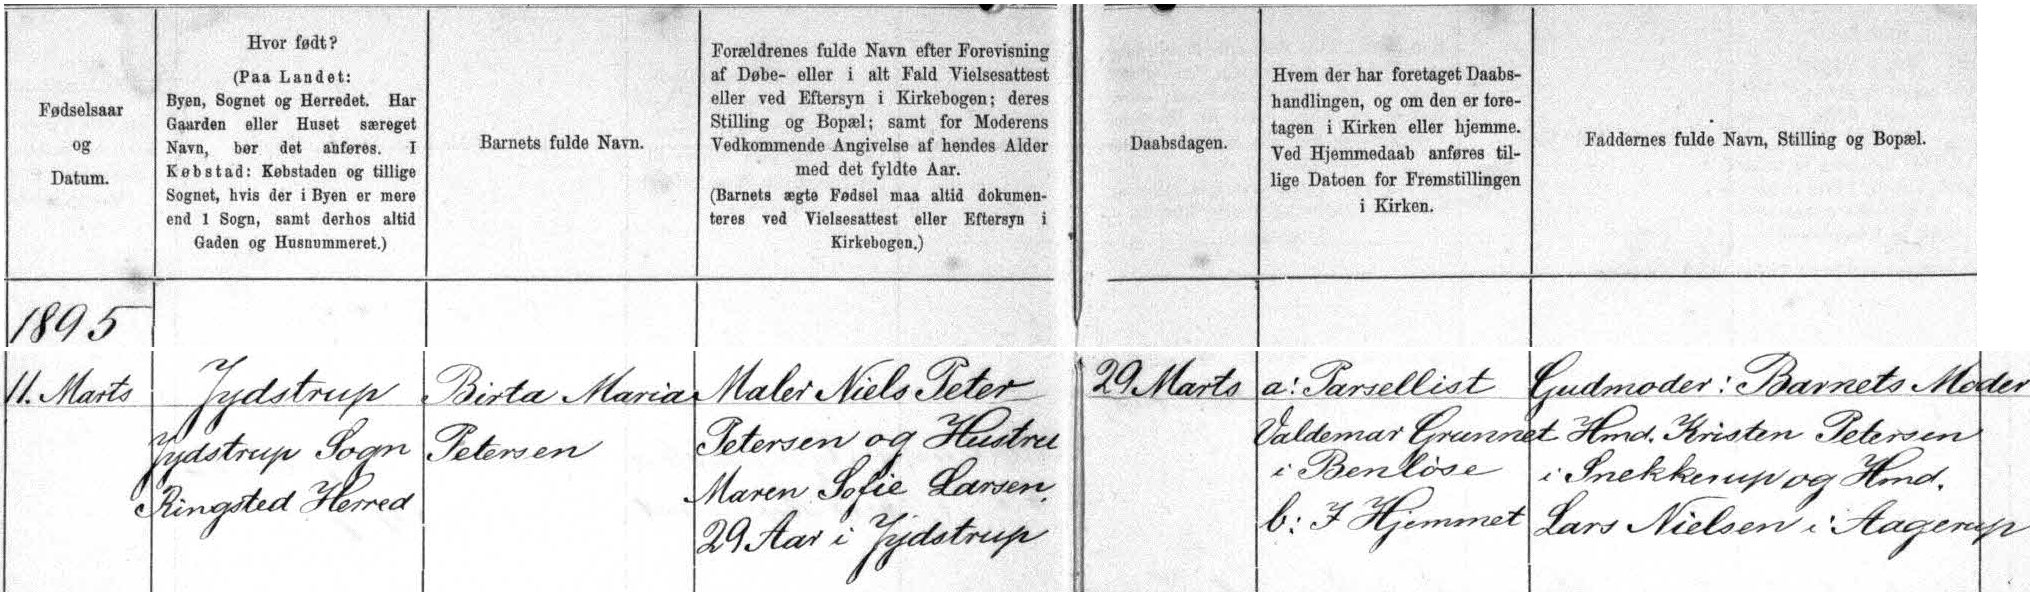 Fødselsaar
og
Datum.
Hvor født?
(Paa Landet:
Byen, Sognet og Herredet. Har
Gaarden eller Huset særeget
Navn, bør det anføres. I
Købstad: Købstaden og tillige
Sognet, hvis der i Byen er mere
end 1 Sogn, samt derhos altid
Gaden og Husnummeret.)
Barnets fulde Navn.
Forældrenes fulde Navn efter Forevisning
af Døbe- eller i alt Fald Vielsesattest
eller ved Eftersyn i Kirkebogen; deres
Stilling og Bopæl; samt for Moderens
Vedkommende Angivelse af hendes Alder
med det fyldte Aar.
(Barnets ægte Fødsel maa altid dokumen-
teres ved Vielsesattest eller Eftersyn i
Kirkebogen.)
Daabsdagen.
Hvem der har foretaget Daabs-
handlingen, og om den er fore-
tagen i Kirken eller hjemme.
Ved Hjemmedaab anføres til-
lige Datoen for Fremstillingen
i Kirken.
Faddernes fulde Navn, Stilling og Bopæl.
1895
11. Marts
Jydstrup
Jydstrup Sogn
Ringsted Herred
Birta Maria
Petersen
Maler Niels Peter
Petersen og Hustru
Maren Sofie Larsen.
29 Aar i Jydstrup
29 Marts
a: Parsellist
Valdemar Grunnet
i Benløse
b: I Hjemmet
Gudmoder: Barnets Moder
Hmd. Kristen Petersen
i Snekkerup og Hmd.
Lars Nielsen i Aagerup